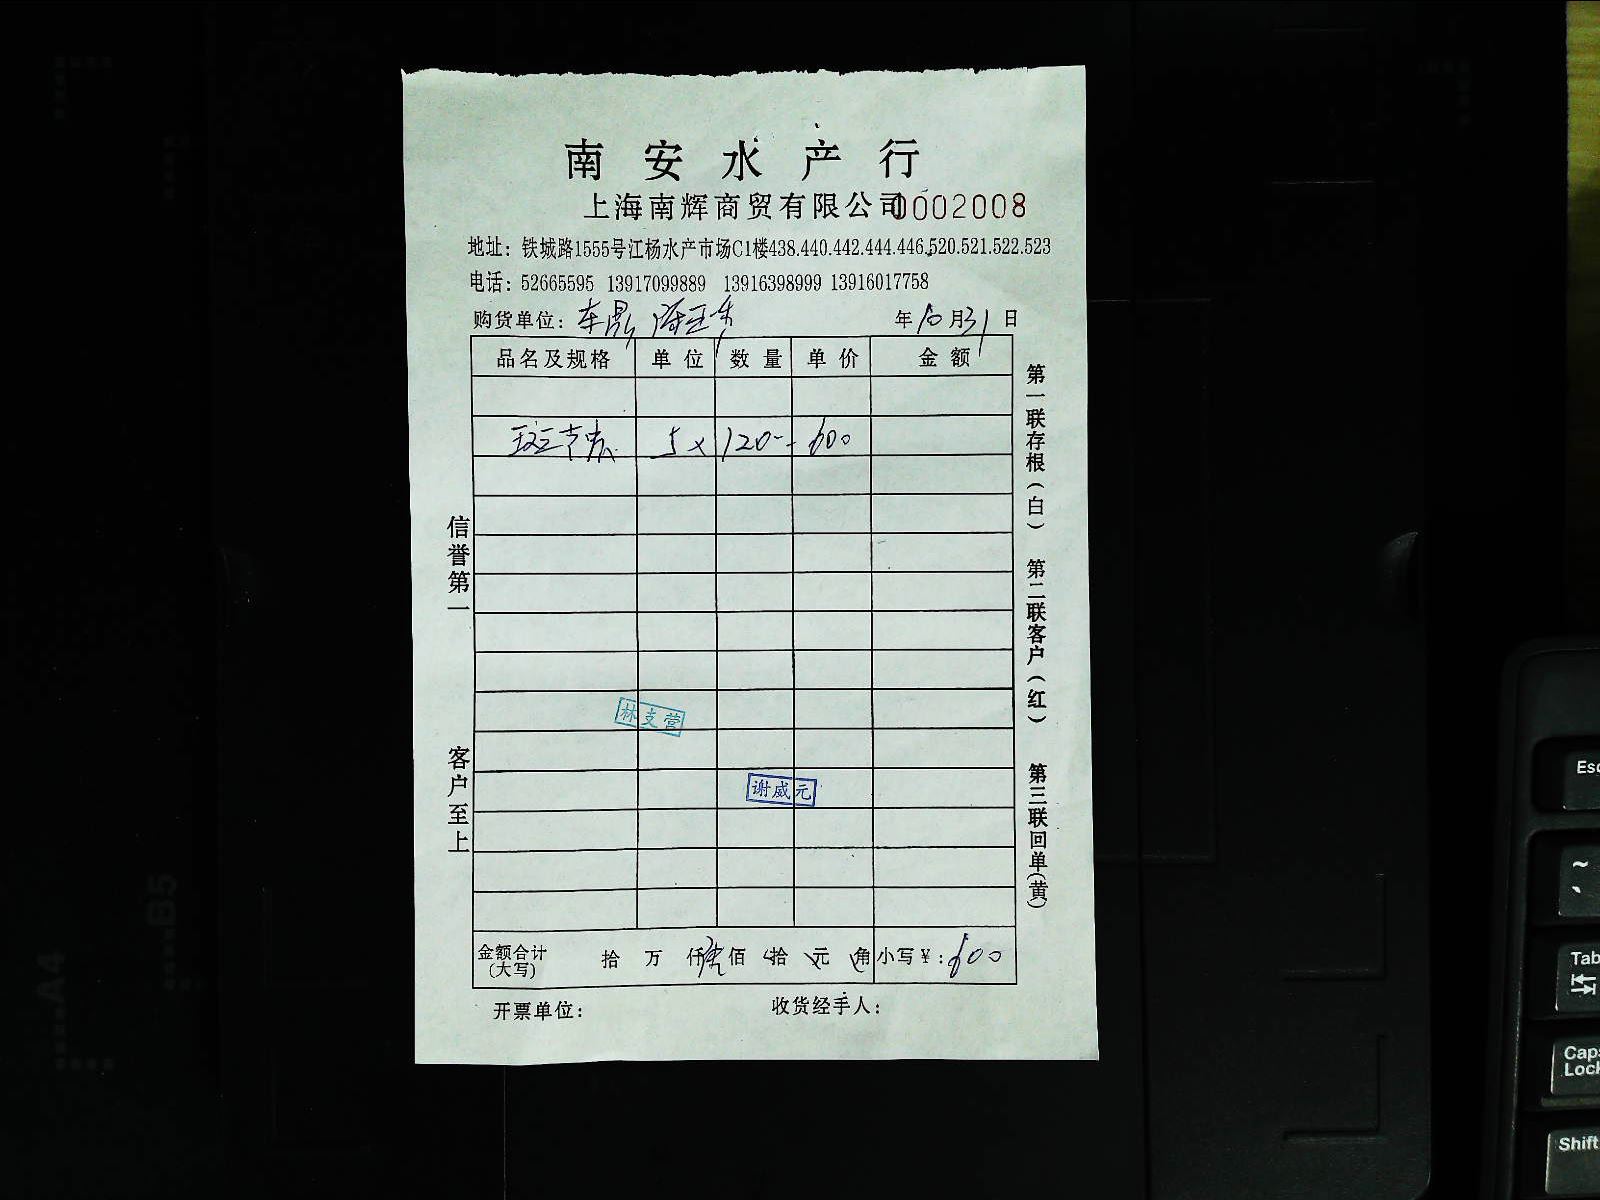 南安水产行
上海南辉商贸有限公司 0002008
地址：铁城路1555号江杨水产市场C1楼438.440.442.444.446.520.521.522.523
电话：52665595 13917099889 13916398999 13916017758
购货单位： 年10月31日
品名及规格 单位 数量 单价 金额
斑节 5 x 120-- 600
林支营
谢威元
金额合计(大写) 拾 万 仟 佰 拾 元 角 小写￥：600
开票单位： 收货经手人：
信誉第一
客户至上
第一联存根(白)
第二联客户(红)
第三联回单(黄)
Esc
~
Tab
Caps Lock
Shift
A4
B5